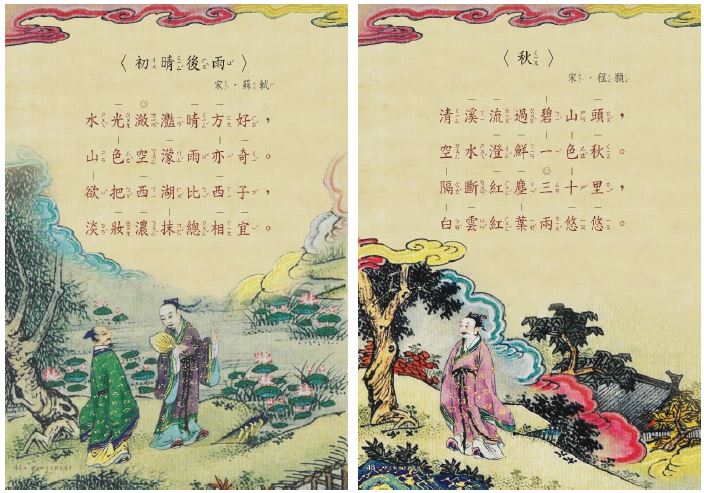 〈初晴後雨〉
宋．蘇軾
水光瀲灩晴方好，
山色空濛雨亦奇。
欲把西湖比西子，
淡妝濃抹總相宜。
44
〈秋〉
宋．程顥
清溪流過碧山頭，
空水澄鮮一色秋。
隔斷紅塵三十里，
白雲紅葉兩悠悠。